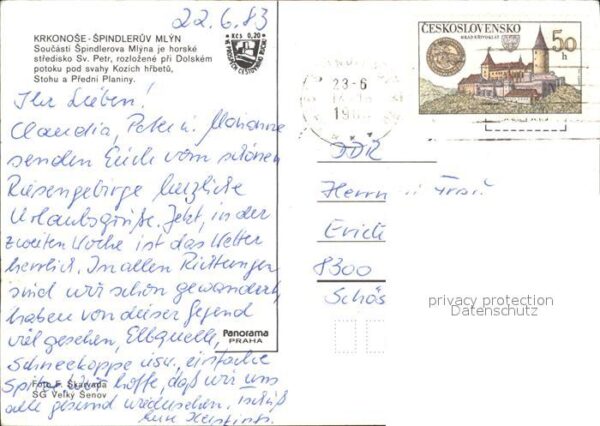 22.6.83
KRKONOŠE - ŠPINDLERŮV MLÝN
Součástí Špindlerova Mlýna je horské
středisko Sv. Petr, rozložené při Dolském
potoku pod svahy Kozích hřbetů,
Stohu a Přední Planiny.
Kčs 0,20
VE PROSPĚCH CESTOVNÍHO RUCHU
ČESKOSLOVENSKO
HRAD KŘIVOKLÁT
50 h
23-6
Ihr Lieben!
Claudia, Peter u. Marianne
senden Euch vom schönen
Riesengebirge herzliche
Urlaubsgrüße. Jetzt, in der
zweiten Woche ist das Wetter
herrlich. In allen Richtungen
sind wir schon gewandert,
haben von dieser Gegend
viel gesehen, Elbquelle,
Schneekoppe usw., einfache
hoffe, daß wir uns
alle gesund wiedersehen.
DDR
Herrn
Erich
8300
Panorama
PRAHA
Foto F. Skarvada
SG Velký Šenov
privacy protection
Datenschutz